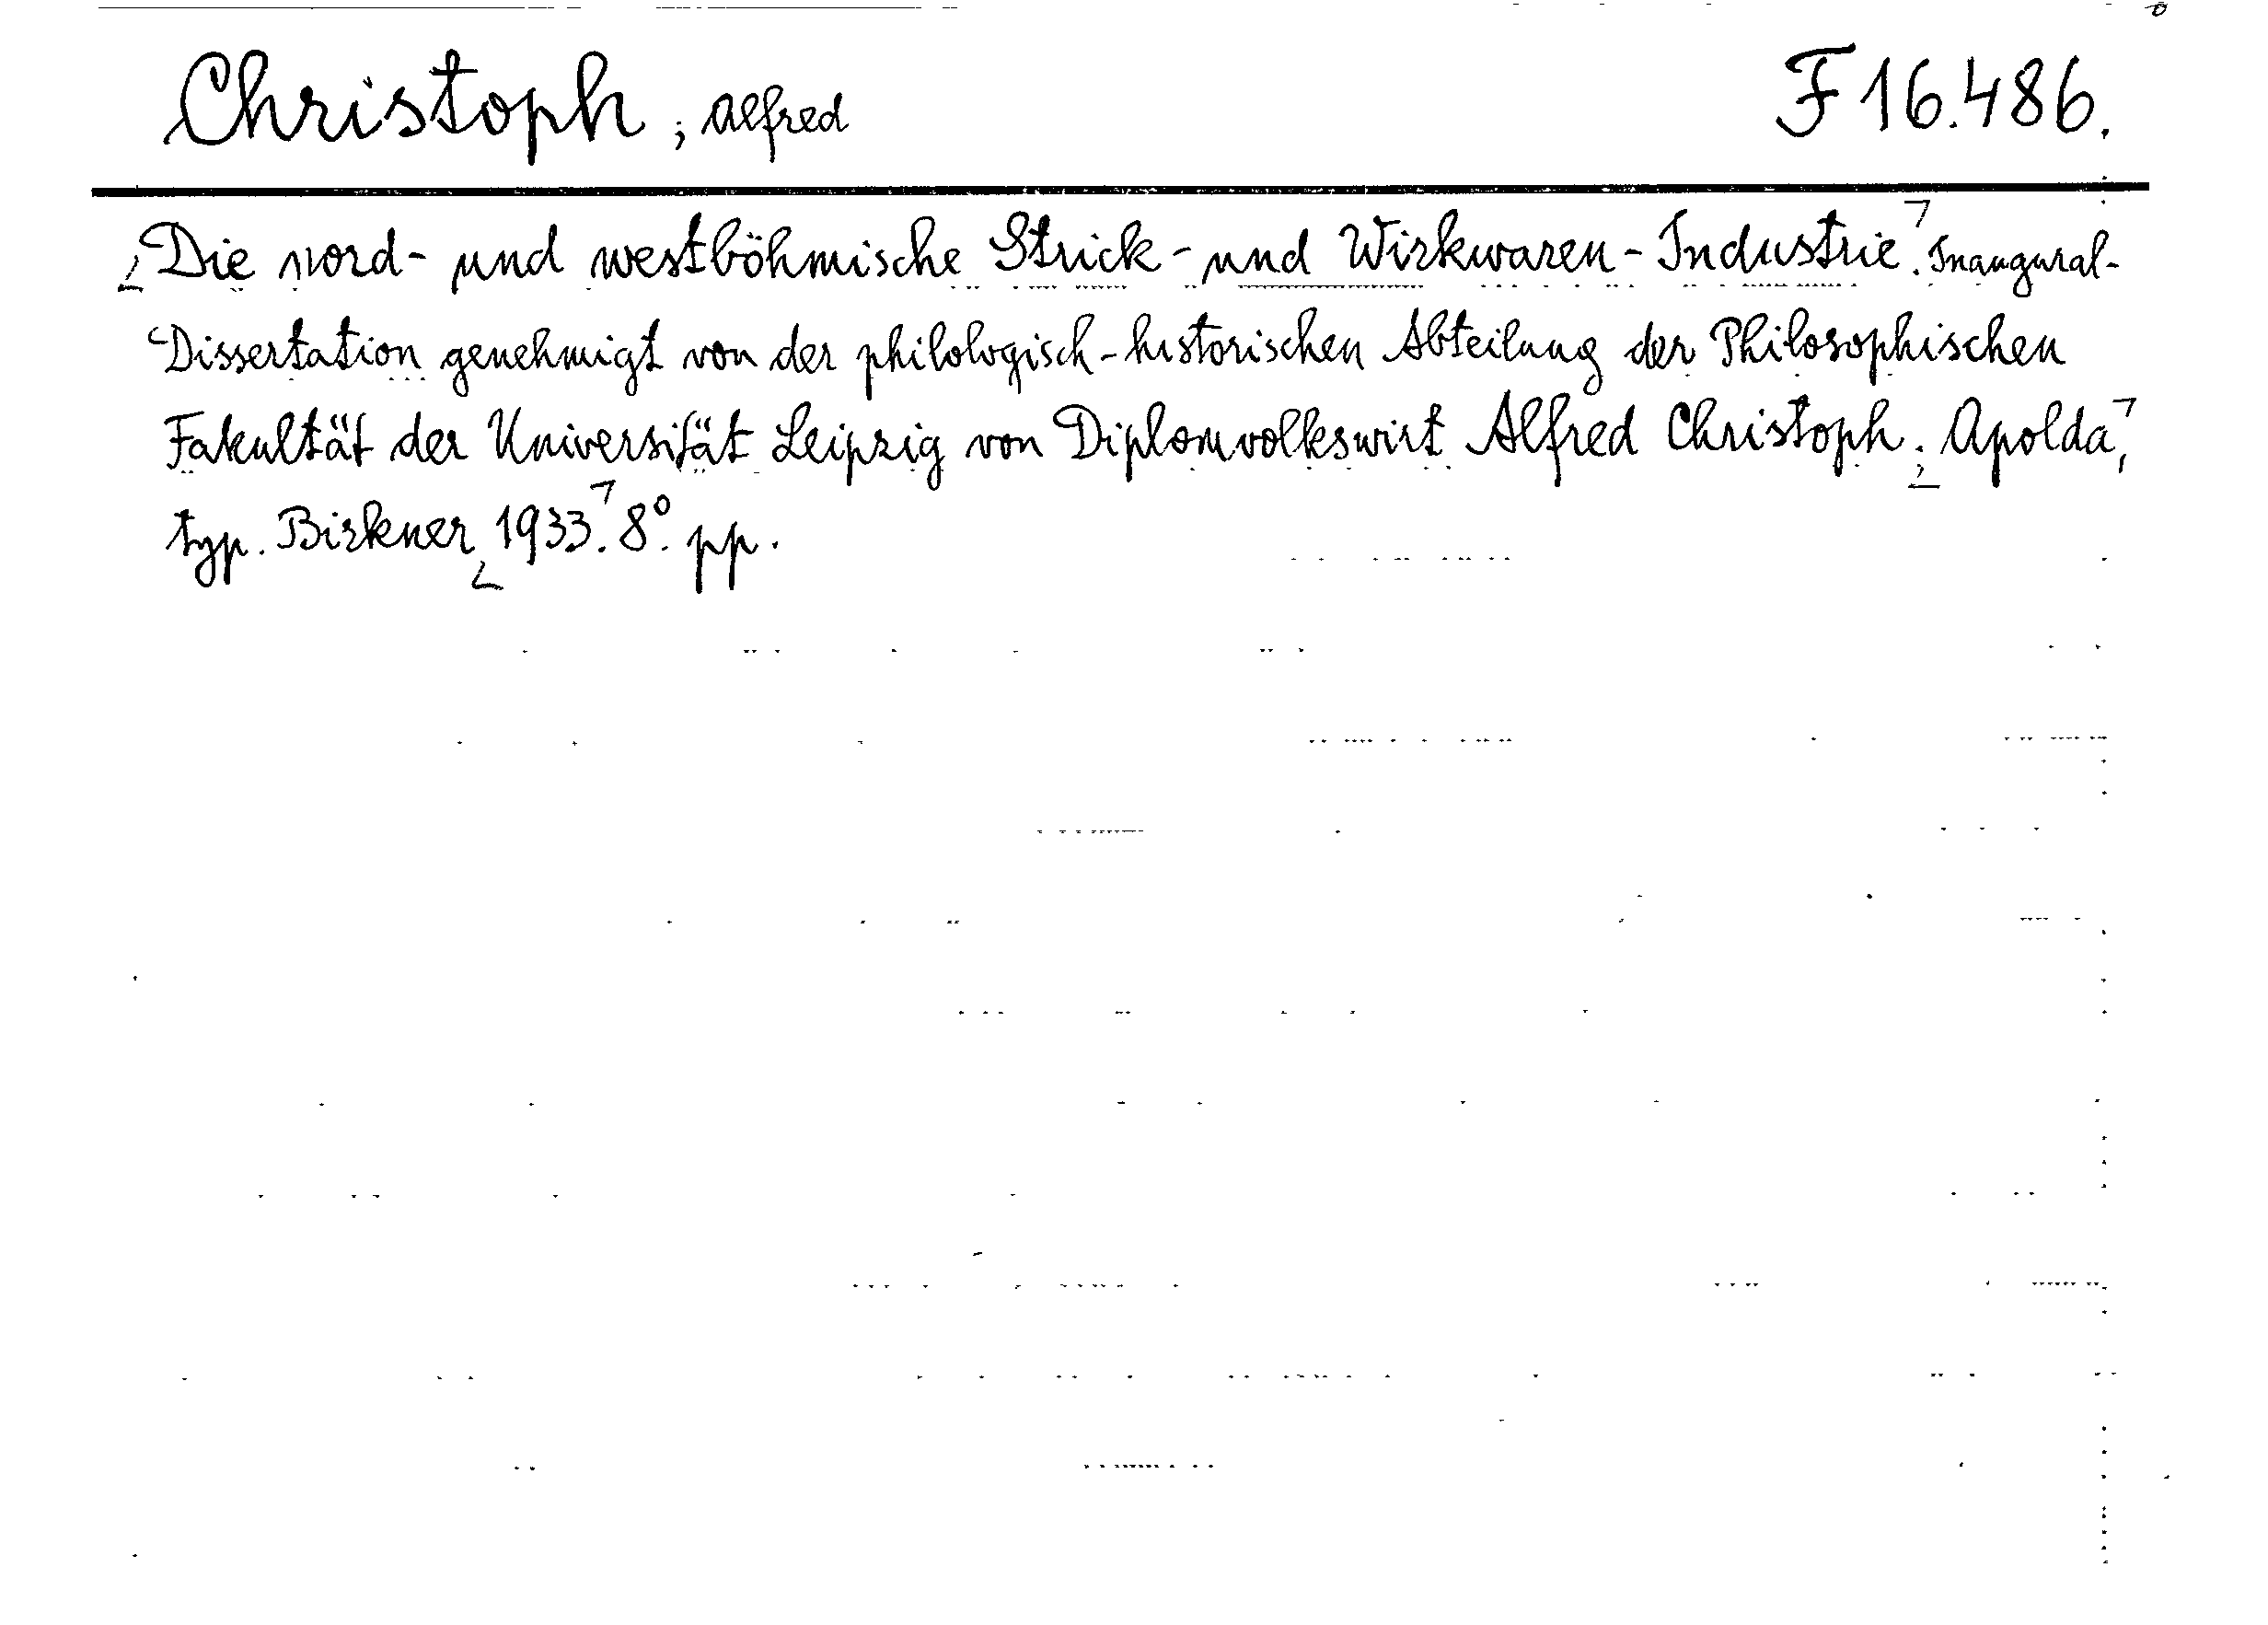 Christoph, Alfred F 16.486.
Die nord- und westböhmische Strick- und Wirkwaren-Industrie. Inaugural-
Dissertation genehmigt von der philologisch-historischen Abteilung der Philosophischen
Fakultät der Universität Leipzig von Diplomvolkswirt Alfred Christoph; Apolda,
typ. Birkner 1933. 8° pp.